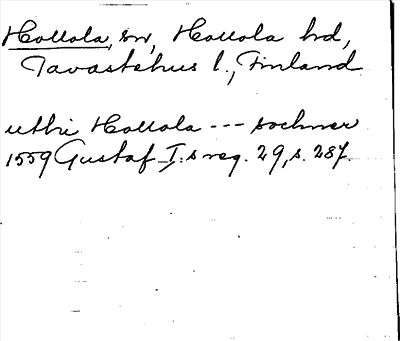 Hollola, sn, Hollola hd,
Tavastehus l., Finland
uthi Hollola --- sochner
1559 Gustaf I:s reg. 29, s. 287.